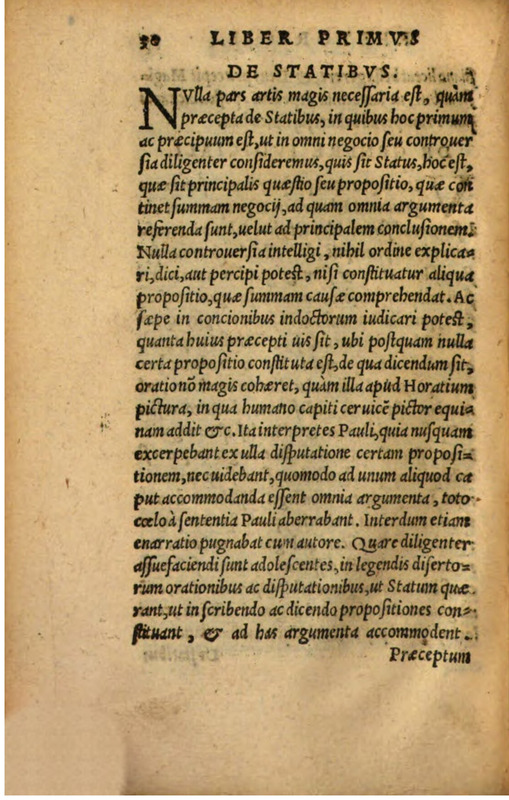 30 LIBER PRIMVS
DE STATIBVS.
NVlla pars artis magis necessaria est, quàm
præcepta de Statibus, in quibus hoc primum
ac præcipuum est, ut in omni negocio seu controuer
sia diligenter consideremus, quis sit Status, hoc est,
quæ sit principalis quæstio seu propositio, quæ con
tinet summam negocij, ad quam omnia argumenta
referenda sunt, uelut ad principalem conclusionem.
Nulla controuersia intelligi, nihil ordine explica=
ri, dici, aut percipi potest, nisi constituatur aliqua
propositio, quæ summam causæ comprehendat. Ac
sæpe in concionibus indoctorum iudicari potest,
quanta huius præcepti uis sit, ubi postquam nulla
certa propositio constituta est, de qua dicendum sit,
oratio nõ magis cohæret, quàm illa apud Horatium
pictura, in qua humano capiti ceruicẽ pictor equi=
nam addit &c. Ita interpretes Pauli, quia nusquam
excerpebant ex ulla disputatione certam proposi=
tionem, nec uidebant, quomodo ad unum aliquod ca
put accommodanda essent omnia argumenta, toto
cœlo à sententia Pauli aberrabant. Interdum etiam
enarratio pugnabat cum autore. Quare diligenter
assuefaciendi sunt adolescentes, in legendis diserto=
rum orationibus ac disputationibus, ut Statum quæ
rant, ut in scribendo ac dicendo propositiones con=
stituant, & ad has argumenta accommodent.
Præceptum